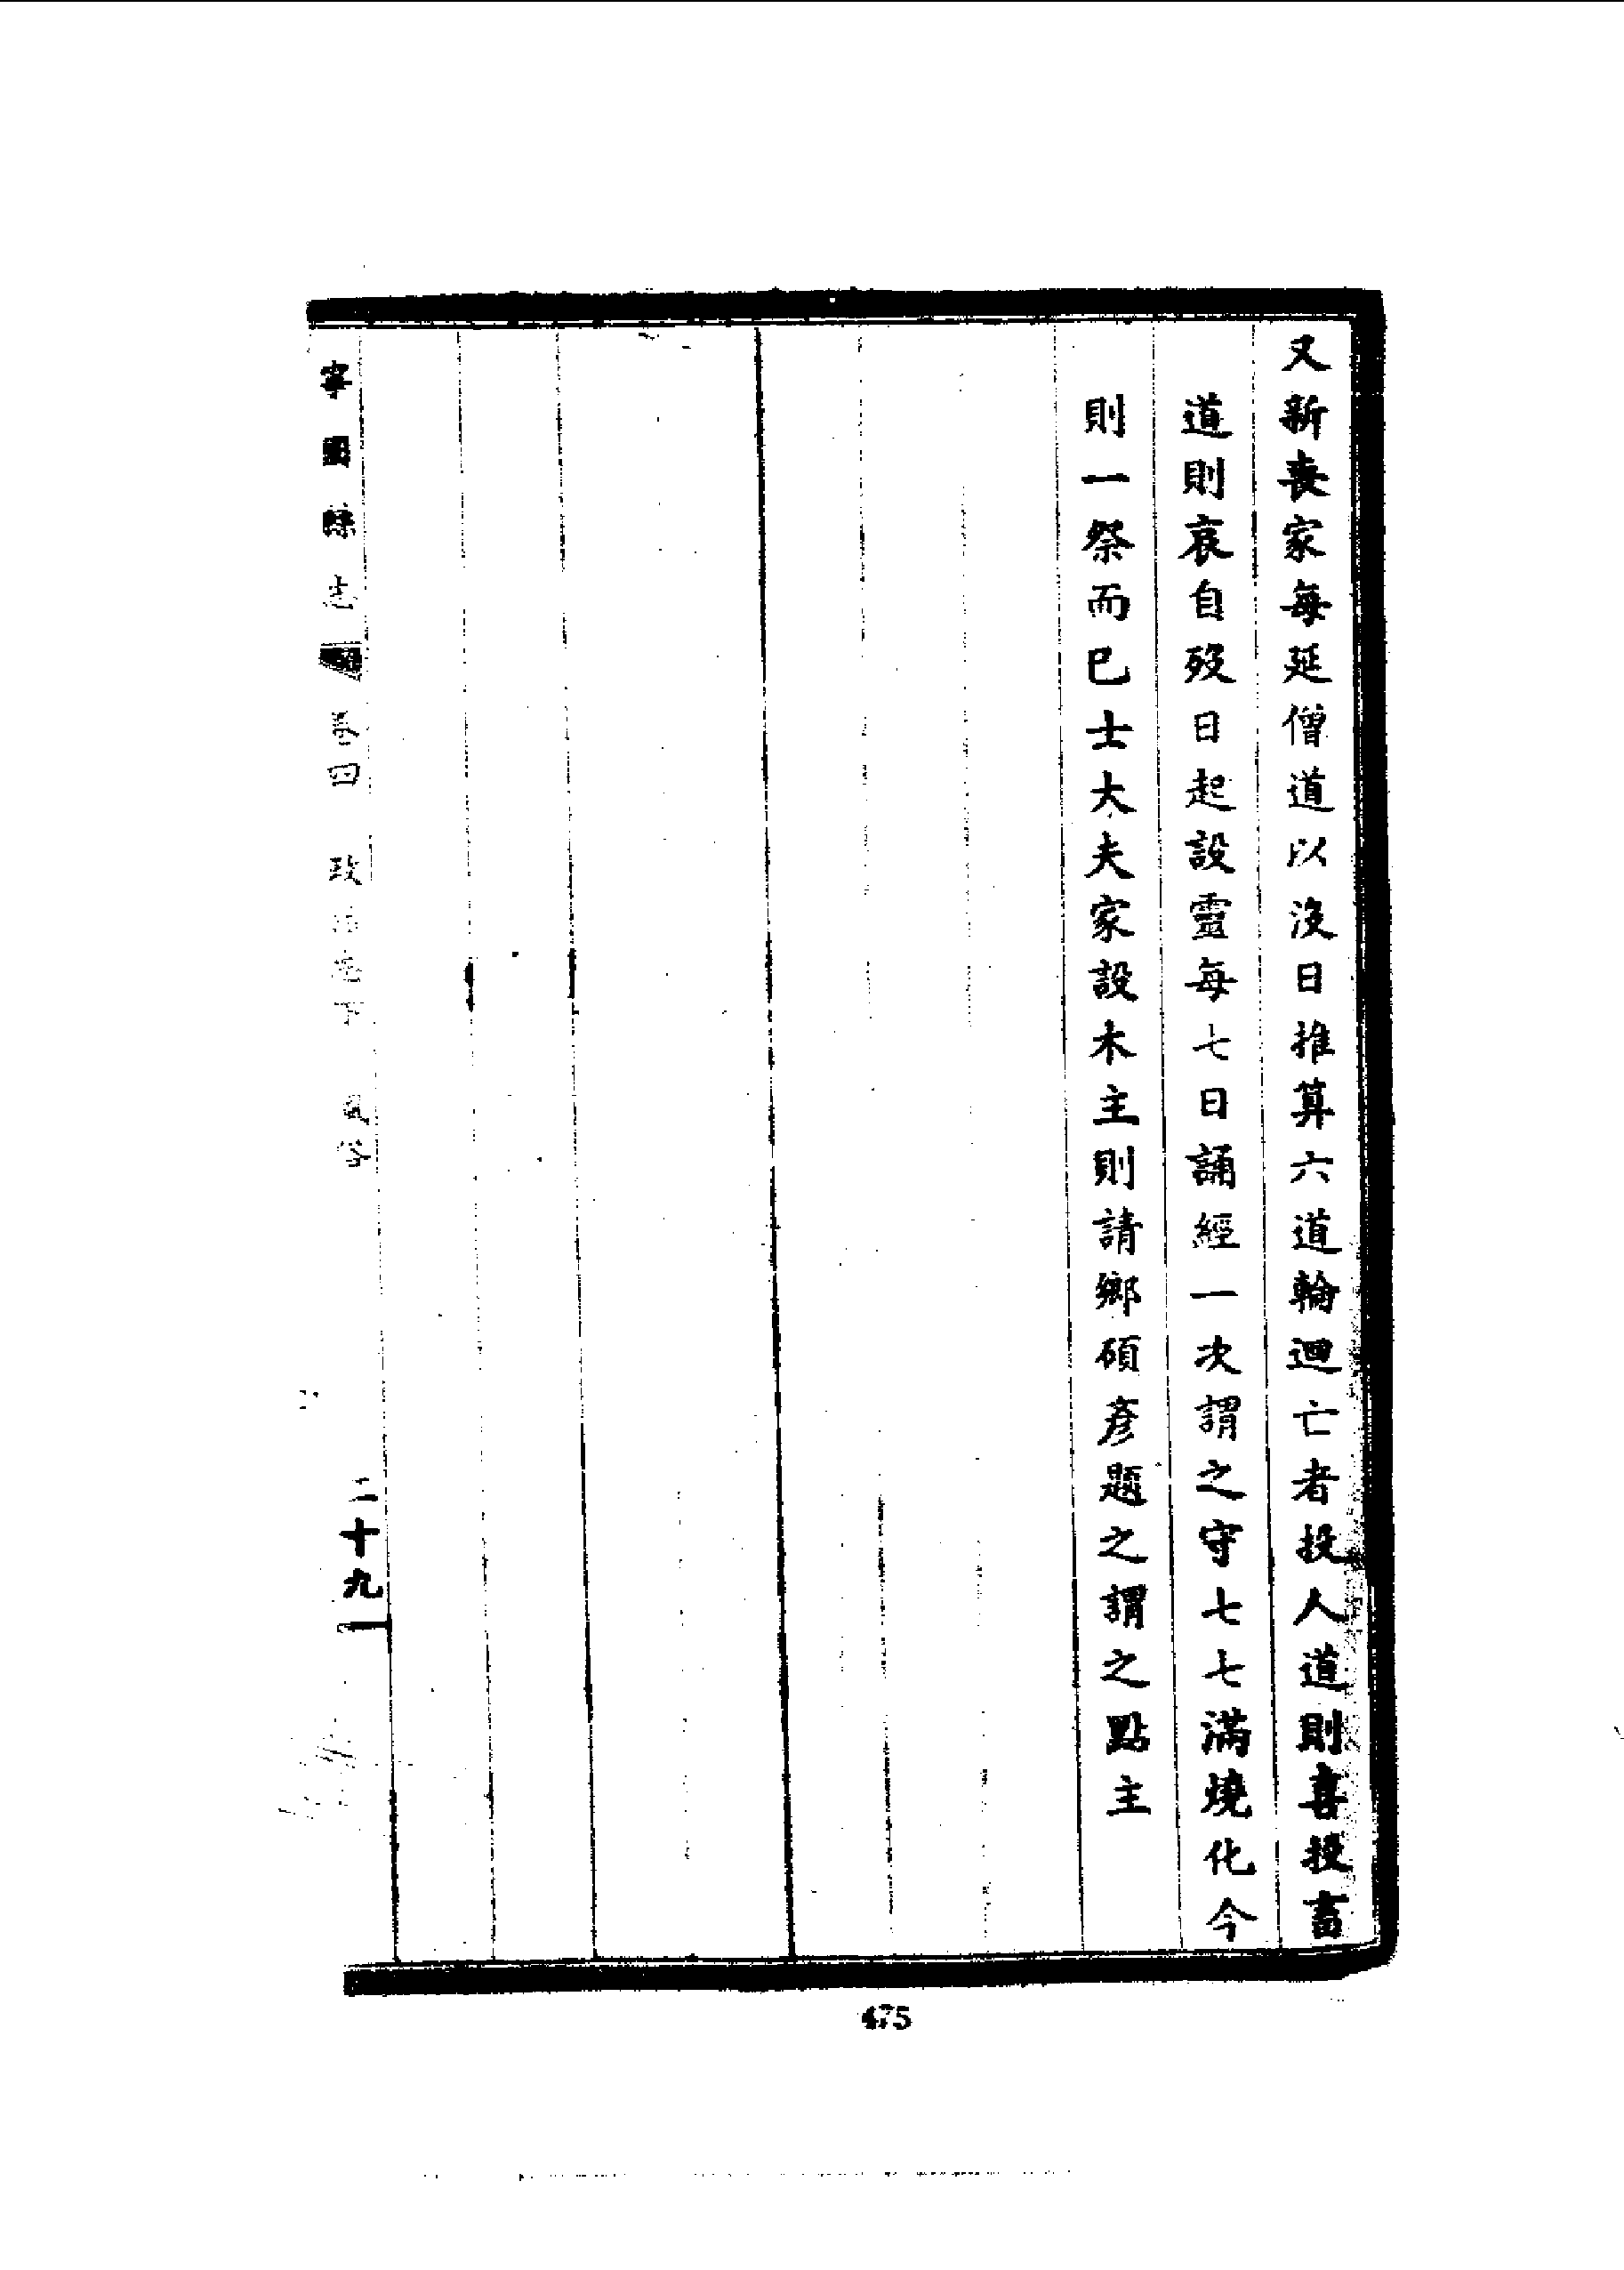 又新喪家每延僧道以沒日推算六道輪迴亡者投人道則喜投畜
道則哀自歿日起設靈每七日誦經一次謂之守七七滿燒化今
則一祭而已士大夫家設木主則請鄉碩彥題之謂之點主
寧國縣志 卷四 政治志下 風俗 二十九
475